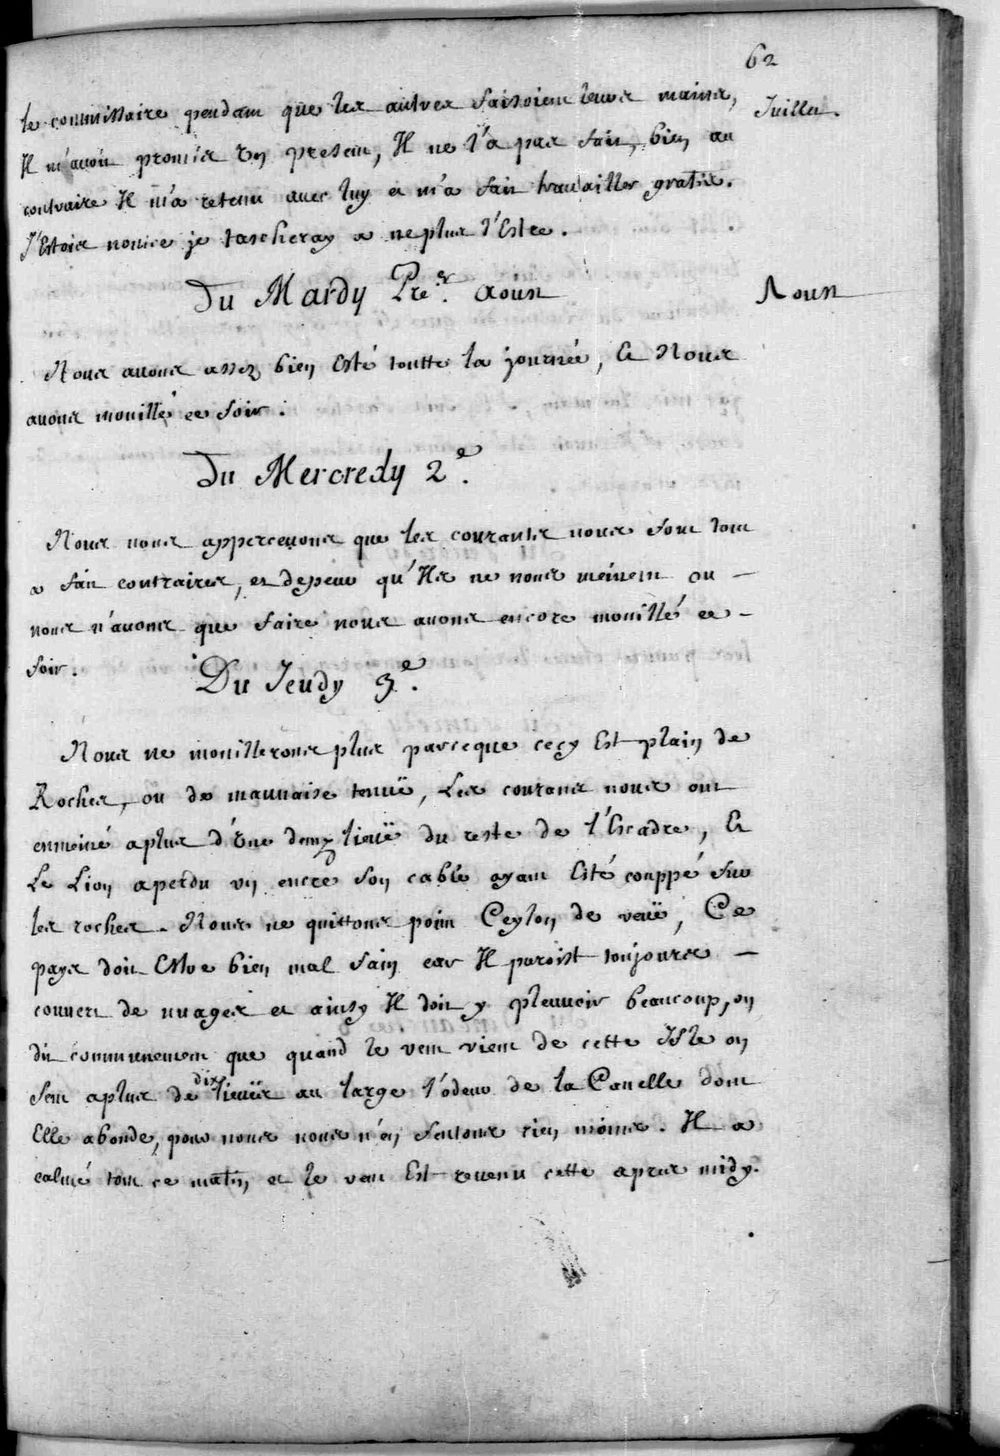 62
Juillet
le commissaire pendant que les autres faisoient leurs mains,
Il m'avoit promis un present, Il ne l'a pas fait, bien au
contraire Il m'a retenu avec luy et m'a fait travailler gratis.
J'Estois novice je tascheray a ne plus l'Estre.
Du Mardy Pre.er aoust
Aoust
Nous avons assez bien Esté toutte la journée, Et Nous
avons mouillé ce soir.
Du Mercredy 2e.
Nous nous appercevons que les courants nous sont tout
a fait contraires, et de peur qu'Ils ne nous meinent ou -
nous n'avons que faire nous avons encore mouillé ce -
soir.
Du Jeudy 3e.
Nous ne mouillerons plus parceque cecy Est plain de
Rochers, ou de mauvaise tenuë, Les courans nous ont
enmeiné a plus d'Une demy lieuë du reste de l'Escadre, Et
Le Lion a perdu un encre son cable ayant Esté couppé sur
les rochers. Nous ne quittons point Ceylon de veuë, Ce
pays doit Estre bien mal sain car Il paroist toujours -
couvert de nuages et ainsy Il doit y pleuvoir beaucoup, on
dit communement que quand le vent vient de cette Isle on
sent a plus de dix lieuës au large l'odeur de la Canelle dont
Elle abonde, pour nous nous n'en sentons rien moins. Il a
calmé tout ce matin, et le vent Est revenu cette apres midy.